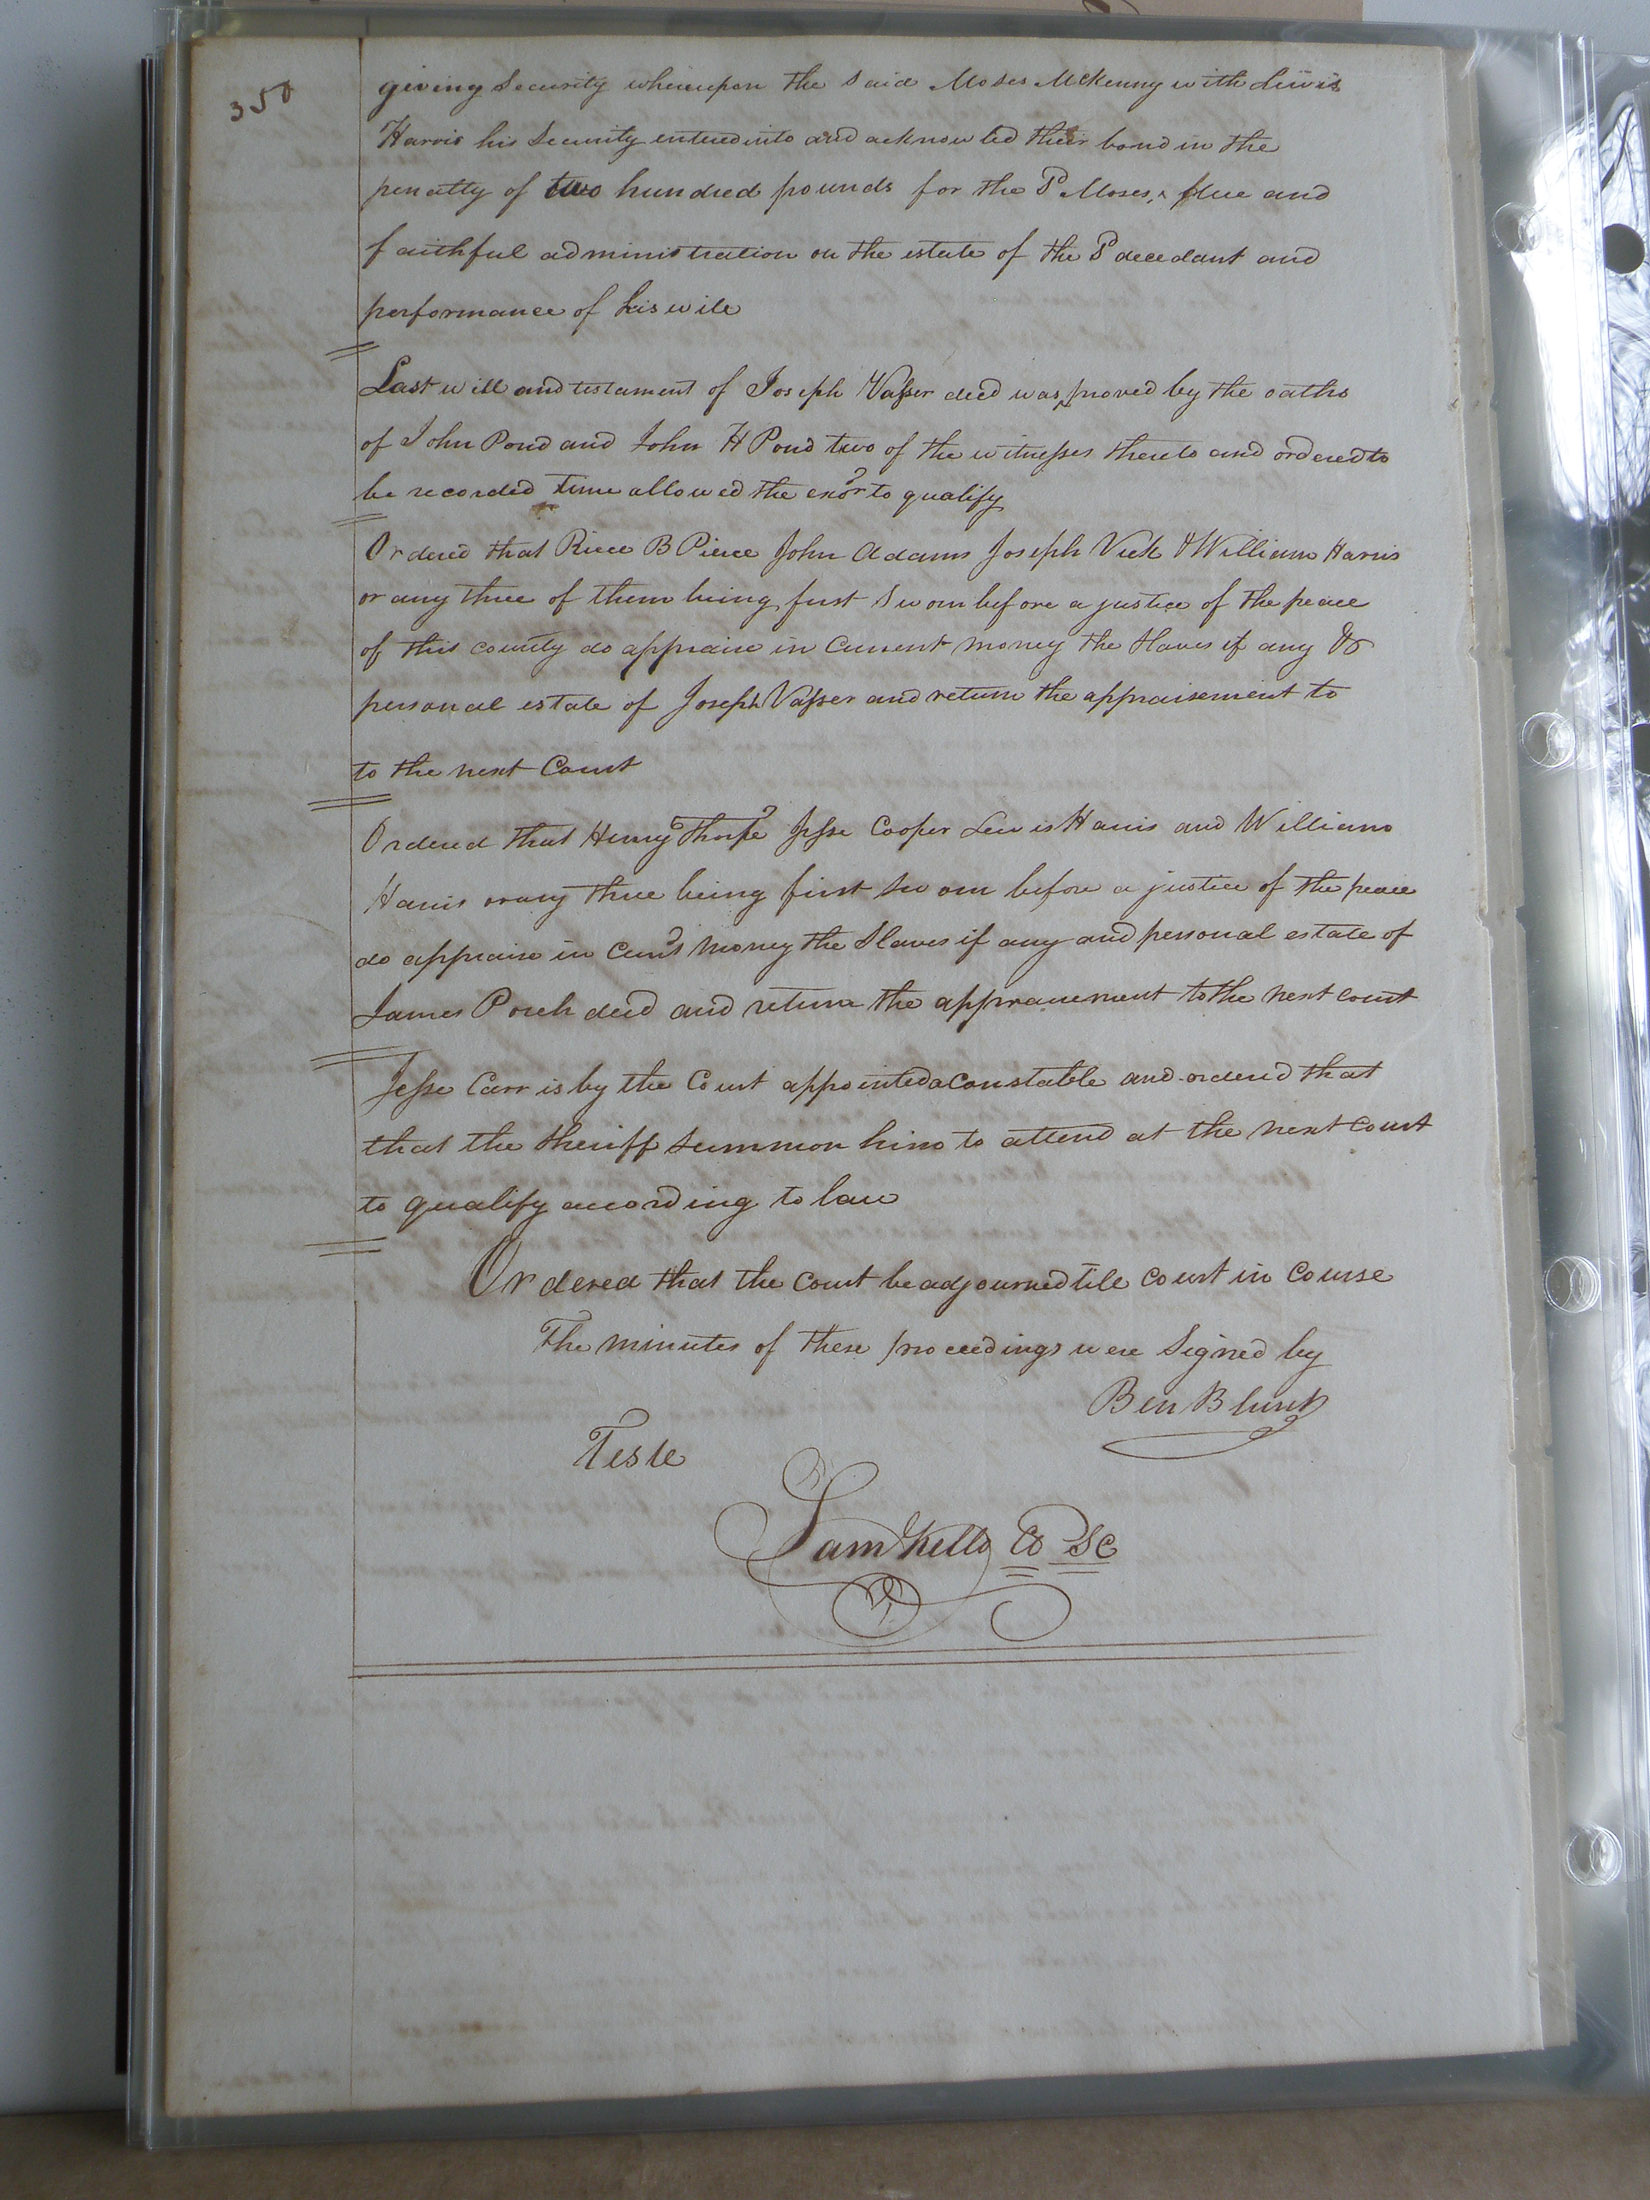 350
giving Security whereupon the Said Moses McKenny with Lewis
Harris his Security entered into and acknowled their bond in the
penalty of two hundred pounds for the Sd Moses, due and
faithful administration on the estate of the Sd decedant and
performance of his will
Last will and testament of Joseph Vasser decd was proved by the oaths
of John Pond and John H Pond two of the witnesses thereto and ordered to
be recorded time allowed the exor to qualify
Ordered that Rice B Pierce John Adams Joseph Vick & William Harris
or any three of them being first Sworn before a justice of the peace
of this county do appraise in Current money the Slaves if any &
personal estate of Joseph Vasser and return the appraisement to
to the next Court
Ordered that Henry Thorpe Jesse Cooper Lewis Harris and William
Harris or any three being first sworn before a justice of the peace
do appraise in Curt money the Slaves if any and personal estate of
James Porch decd and return the appraisement to the next court
Jesse Carr is by the Court appointed a Constable and ordered that
that the Sheriff summon him to attend at the next Court
to qualify according to law
Ordered that the Court be adjourned till court in Course
The minutes of these proceedings were Signed by
Ben Blunt
Teste
Sam Kello Cl SC